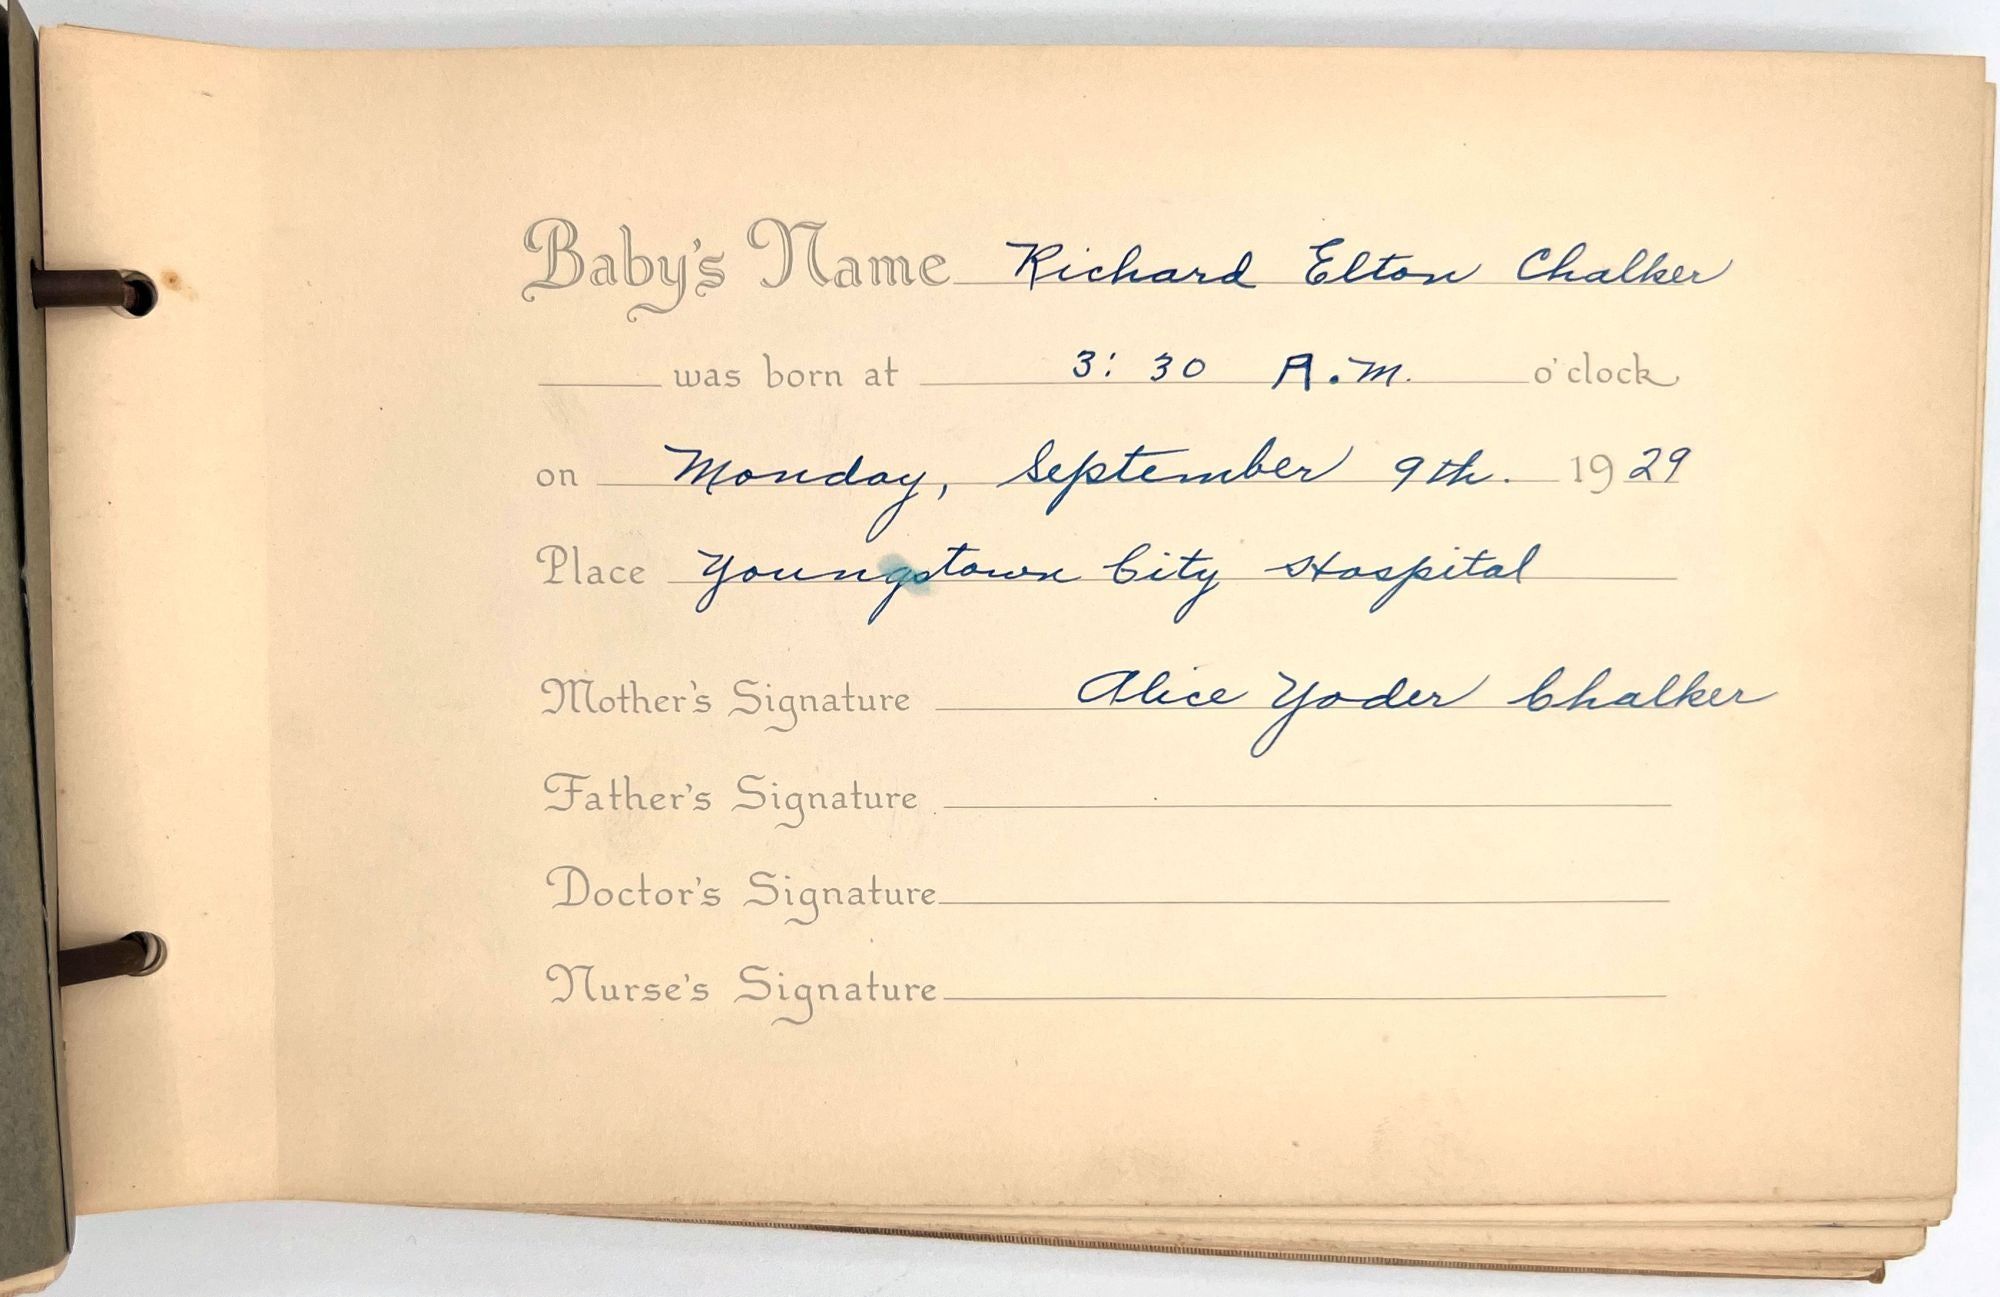 Baby's Name Richard Elton Chalker
was born at 3:30 A.M. o'clock
on Monday, September 9th. 1929
Place Youngstown City Hospital
Mother's Signature Alice Yoder Chalker
Father's Signature
Doctor's Signature
Nurse's Signature